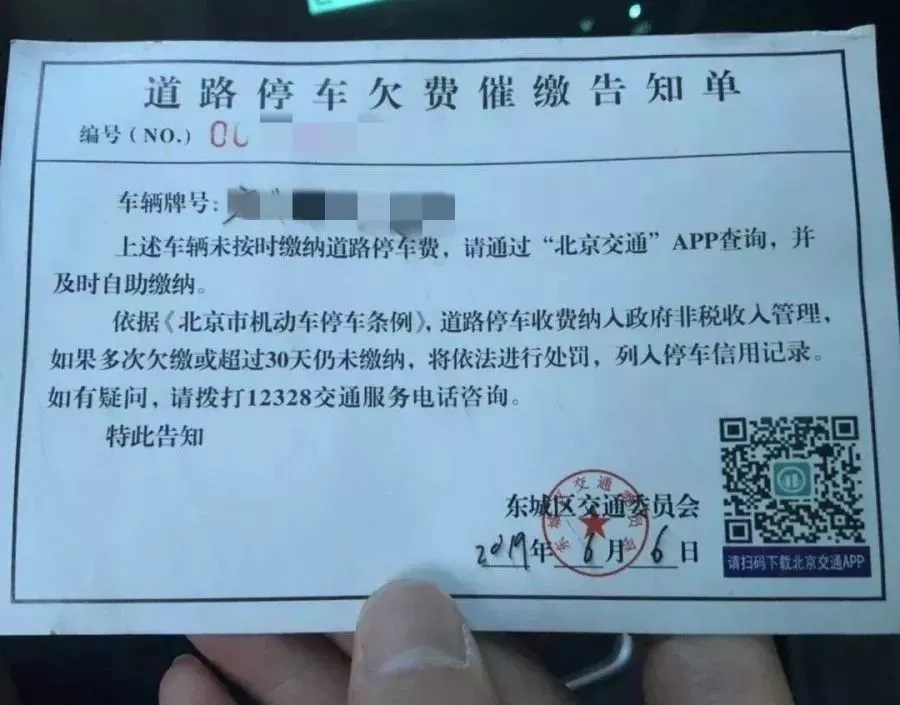 道路停车欠费催缴告知单
编号(NO.) 00
车辆牌号:
上述车辆未按时缴纳道路停车费，请通过“北京交通”APP查询，并
及时自助缴纳。
依据《北京市机动车停车条例》，道路停车收费纳入政府非税收入管理，
如果多次欠缴或超过30天仍未缴纳，将依法进行处罚，列入停车信用记录。
如有疑问，请拨打12328交通服务电话咨询。
特此告知
东城区交通委员会
2019年6月6日
东城区交通委员会
请扫码下载北京交通APP